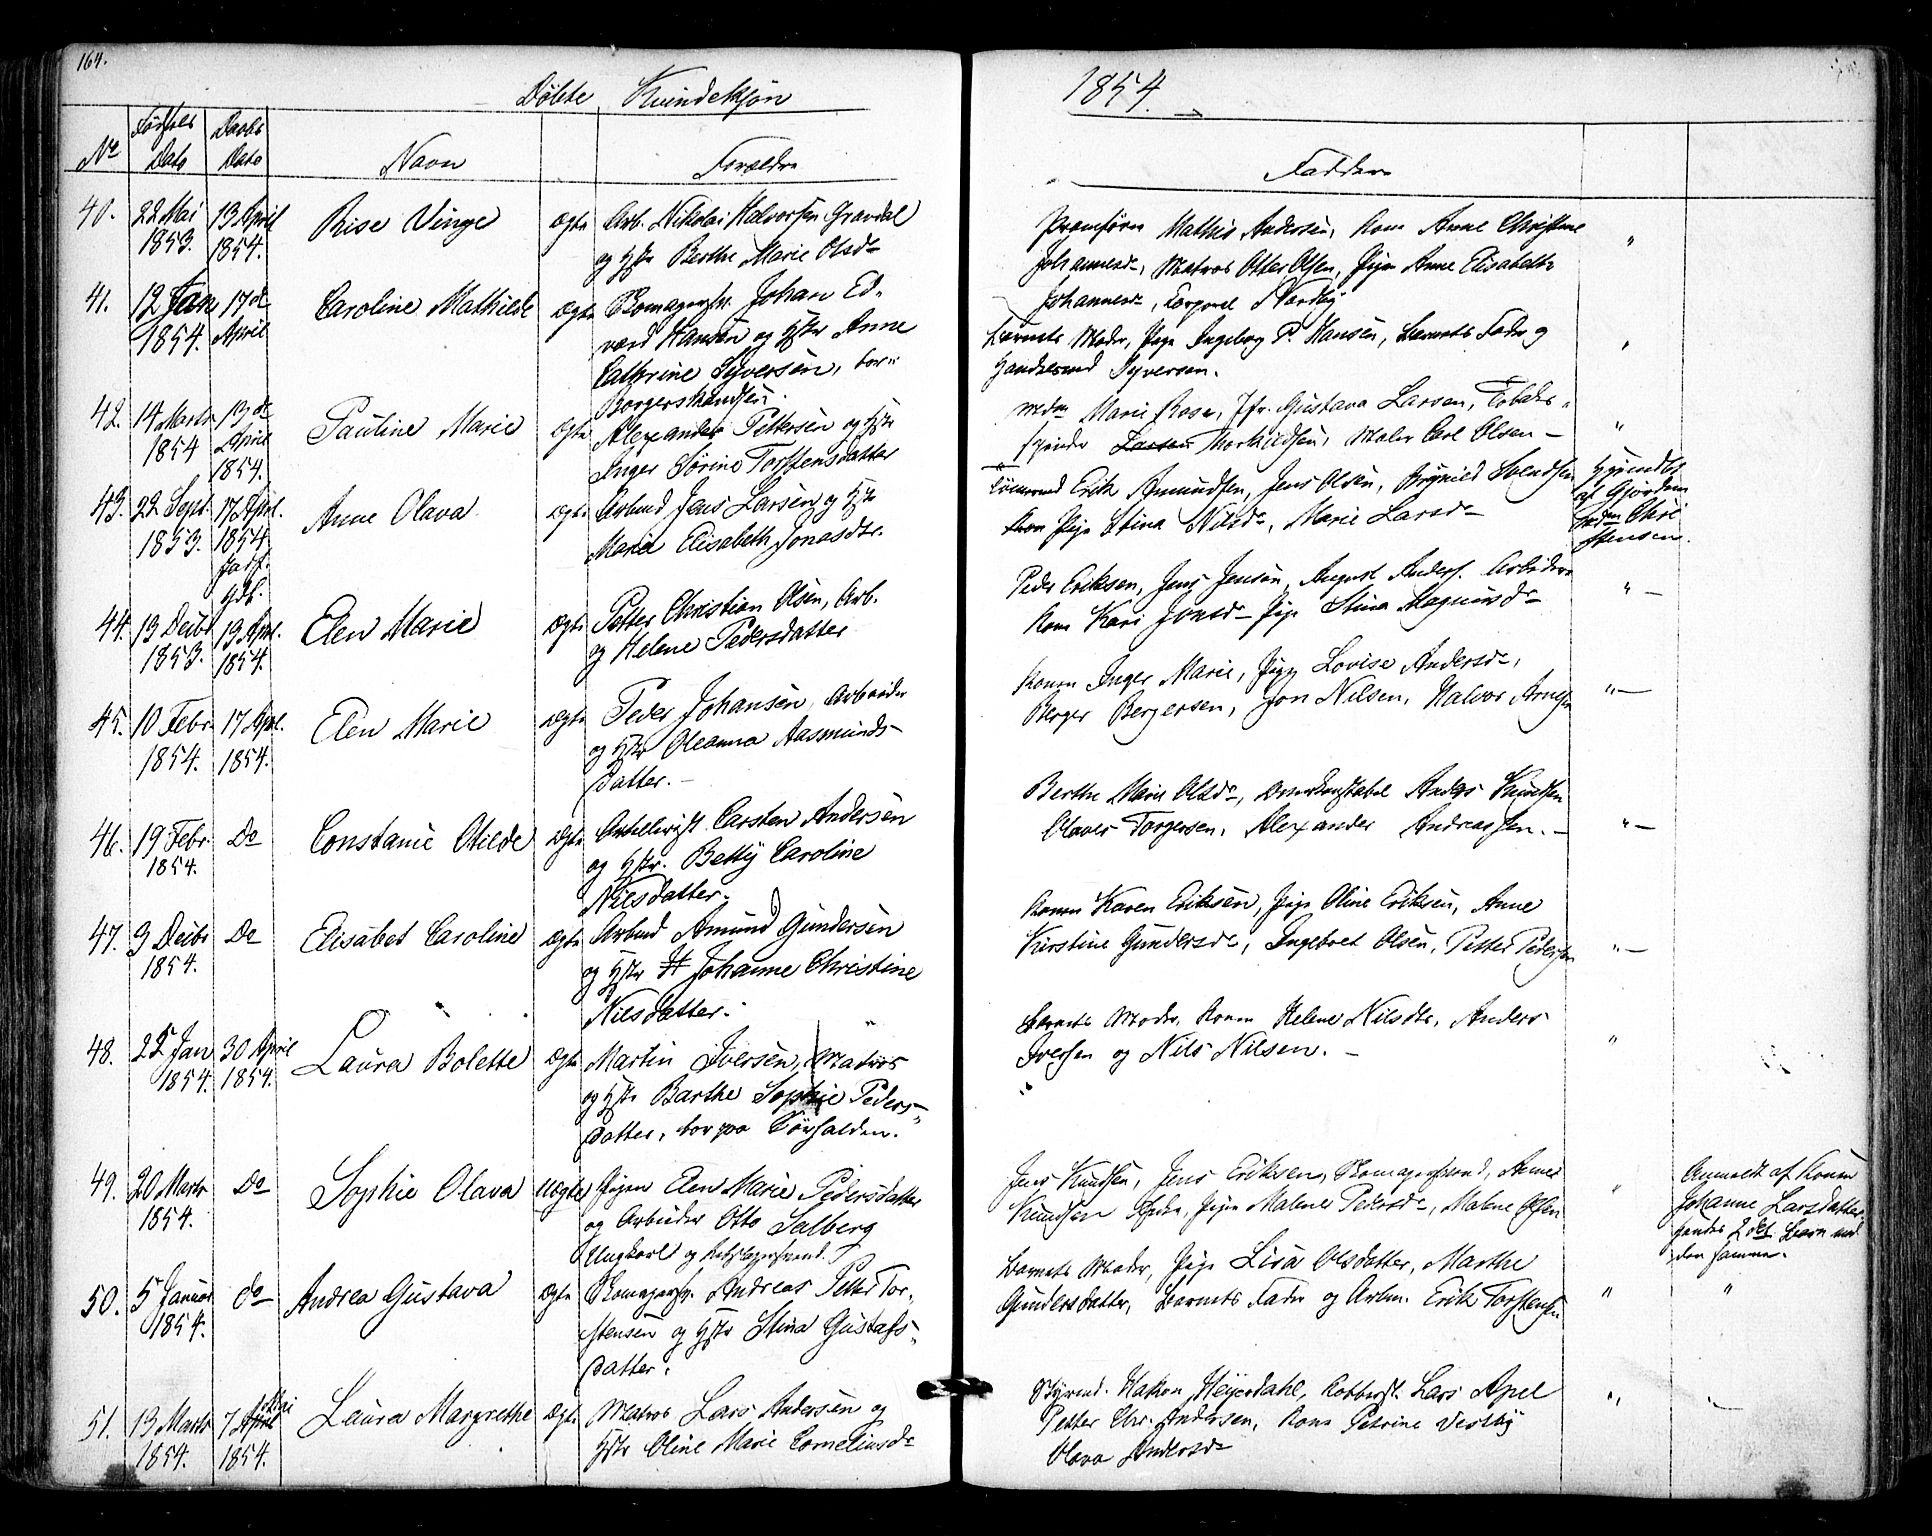 164.
Döbte Kvindekjön
1854.
No Födsels Dato Daabs Dato Navn Forældre
Faddere
40. 22 Mai 1853. 13 April 1854. Rise Vinge Ægte Arb. Nikolai Halvorsen Gravdal
og Hstr Berthe Marie Olsdr
Mathis Andersen, Kone Anne Christine
Johannesdr, Matros Otter Olsen, Pige Anne Elisabeth
Johannesdr, Corporal Nordby
41. 12 Jan 1854. 17de April Caroline Mathilde Ægte Skomagersv. Johan Ed-
vard Hansen og Hstr Anne
Cathrine Syversen, bor
Borgerskandsen.
Barnets Moder, Pige Ingeborg P. Hansen, Barnets Fader og
Handelsmd Syversen.
42. 14 Marts 1854 13de April 1854. Pauline Marie Ægte Alexander Pettersen og Hstr
Inger Sörine Torstensdatter
Mdm Marie Rose, Jfr. Gustava Larsen, Tobaks-
spinder Larsen Thorkildsen, Maler Carl Olsen -
43. 22 Sept. 1853. 17 April. 1854 Anne Olava Ægte Arbmd Jens Larsen og Hstr
Marie Elisabeth Jonasdtr.
Erik Amundsen, Jens Olsen, Svendsen
Kon Pige Stina Nilsdr, Marie Larsdr
af Gjordem
Mdm Chri
stensen.
44. 13 Decbr 1853. 19 Apl. 1854. Elen Marie Ægte Petter Christian Olsen, Arb.
og Helene Pedersdatter
Peder Eriksen, Jens Jensen, August Anders. Arbeidere
Kone Kari Jonsdr Pige Stina Magnusdr
"-
45. 10 Febr. 1854. 17 Apl. 1854. Elen Marie Ægte Peder Johansen, Arbeider
og Hstr Oleanna Aasmunds-
datter. -
Konen Inger Marie, Pige Lovise Andersdr,
Berger Bergersen, Jon Nilsen, Halvor Arnesen
"-
46. 19 Febr. 1854. Do Constanie Otilde Ægte Artillerist Carsten Andersen
og Hstr. Betty Caroline
Nilsdatter.
Berthe Marie Olsdr, Anders Knudsen
Olaves Torgersen, Alexander Andreassen. -
"-
47. 9 Decbr 1854. Do Elisabet Caroline Ægte Arbmd Amund Gundersen
og Hstr H Johanne Christine
Nilsdatter.
Konen Karen Eriksen, Pige Oline Eriksen, Anne
Kirstine Gundersdr, Ingebret Olsen, Petter Pedersen
"-
48. 25 Jan 1854. 30 April 1854. Laura Bolette Ægte Martin Iversen, Matros
og Hstr Barthe Sophie Peders-
datter, bor paa
Barnets Moder, Konen Helene Nilsdtr, Anders
Iversen og Nils Nilsen. -
"
49. 20 Marts 1854. Do Sophie Olava Uægte Pigen Elen Marie Pedersdatter
og Arbeider Otto Solberg
Ungkarl og
Jens Knudsen, Jens Eriksen, Skomagersvend, Anne
Knudsen, Pige Malene Pedersdr, Malene Olsen
Anmeldt af Konen
Johanne Larsdatter,
hendes 2det Barn med
den samme.
50. 5 Januar 1854. do Andrea Gustava Ægte Skomagersv. Andreas Petter Tor-
stensen og Hstr Stina Gustafs-
datter.
Barnets Moder, Pige Lisa Olsdatter, Marthe
Gundersdatter, Barnets Fader og Arbm. Erik Torstensen
" "
51. 13 Marts 1854. 7 April Mai 1854. Laura Margrethe Ægte Matros Lars Andersen og
Hstr Oline Marie Corneliusdr
Styrmd. Hakon Heyerdahl, Kobbersl. Lars Apel
Petter Chr. Andersen, Kone Petrine Vestby
Olava Andersdr